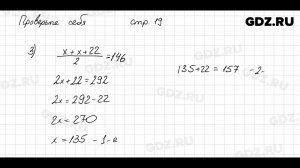 Проверьте себя стр. 19
GDZ.RU
3) (x + x + 22)/2 = 146
2x + 22 = 292
2x = 292 - 22
2x = 270
x = 135 - 1-е
135 + 22 = 157 - 2-
GDZ.RU